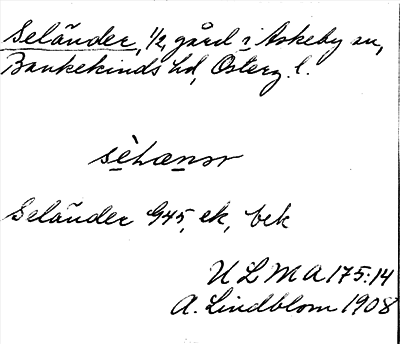 Seländer, 1/2 gård i Askeby sn,
Bankekinds hd, Österg. l.
Seländer G45, ek, bek
U L M A 175:14
A. Lindblom 1908